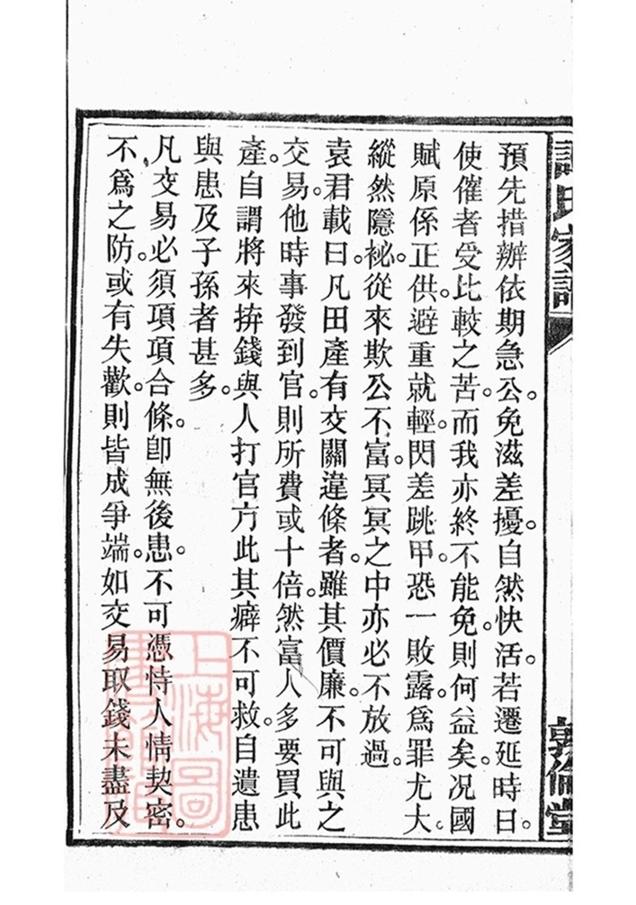 預先措辦依期急公。免滋差擾。自然快活。若遷延時日。
使催者受比較之苦。而我亦終不能免。則何益矣。况國
賦原係正供。避重就輕。閃差跳甲。恐一敗露。爲罪尤大。
縱然隱祕。從來欺公不富。冥冥之中亦必不放過。
袁君載曰。凡田產有交關違條者。雖其價廉。不可與之
交易。他時事發到官。則所費或十倍。然富人多要買此
產。自謂將來拚錢與人打官方。此其癖不可救。自遺患
與患及子孫者甚多。
凡交易必須項項合條。卽無後患。不可憑恃人情契密。
不爲之防。或有失歡。則皆成爭端。如交易取錢未盡及
氏家
敦倫堂
上海圖